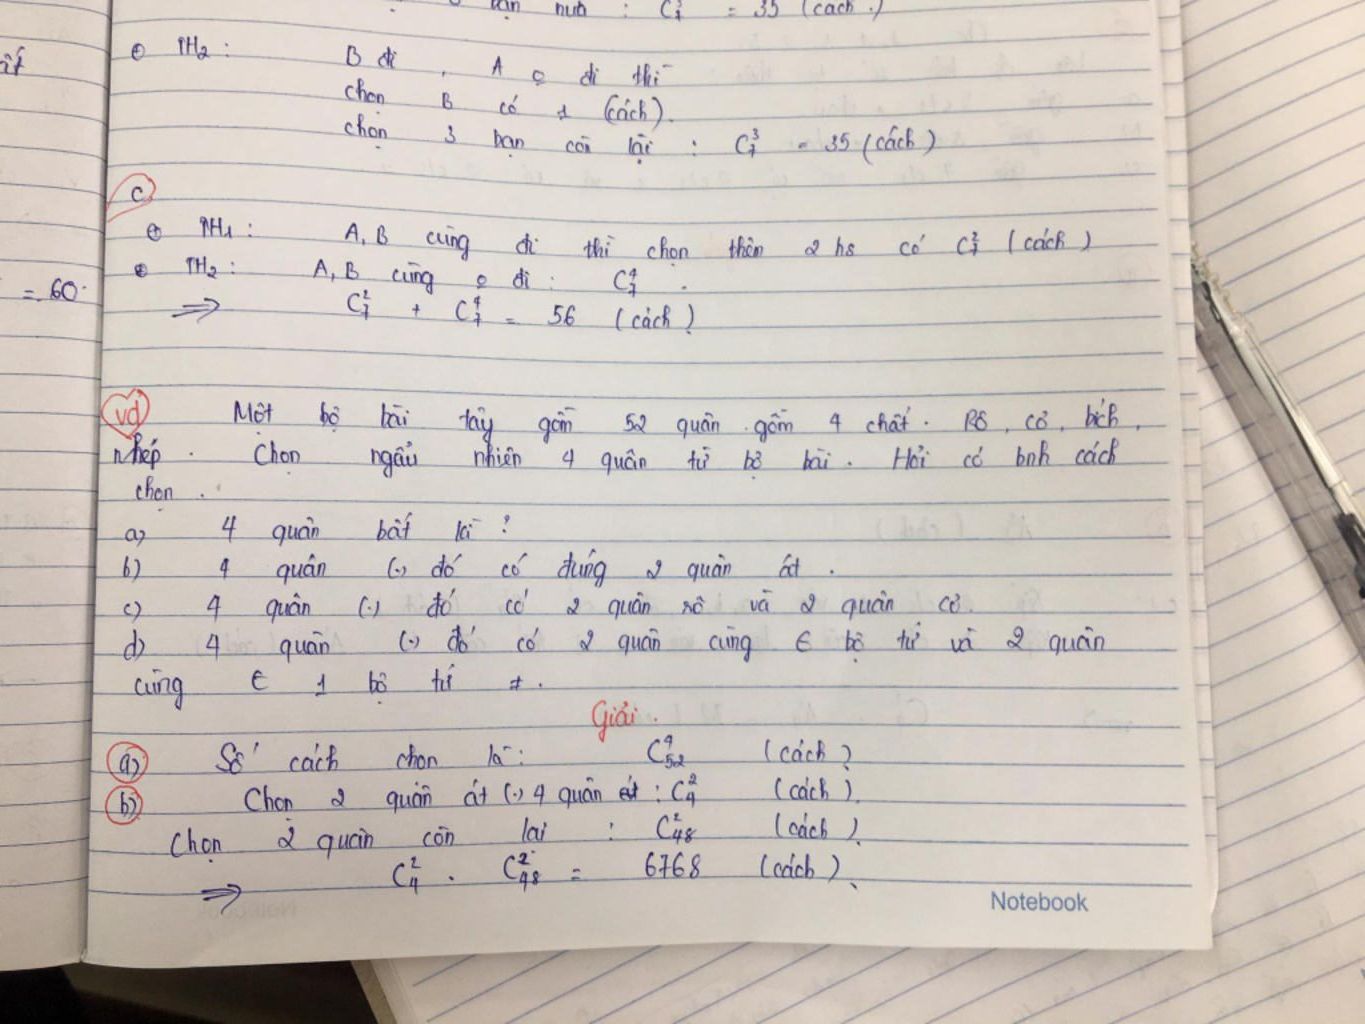 bạn nữa : C³₇ = 35 (cách.)
ất
⊕ TH₂ : B đi , A o đi thì
chọn B có 1 (cách).
chọn 3 bạn còn lại : C³₇ = 35 (cách)
c
⊕ TH₁ : A, B cùng đi thì chọn thên 2 hs có C²₇ (cách)
⊕ TH₂ : A, B cùng o đi : C⁴₇ .
= 60.
⇒ C²₇ + C⁴₇ = 56 (cách)
vd Một bộ bài tây gồm 52 quân . gồm 4 chất . Rô , cơ , bích ,
nhép . Chọn ngẫu nhiên 4 quân từ bộ bài . Hỏi có bnh cách
chọn .
a) 4 quân bất kì ?
b) 4 quân (.) đó có đúng 2 quân át .
c) 4 quân (.) đó có 2 quân rô và 2 quân cơ.
d) 4 quân (.) đó có 2 quân cùng ∈ bộ tứ và 2 quân
cùng ∈ 1 bộ tứ ≠ .
Giải .
a) Số cách chọn là : C⁴₅₂ (cách)
b) Chọn 2 quân át (.) 4 quân át : C²₄ (cách).
Chọn 2 quân còn lại : C²₄₈ (cách).
⇒ C²₄ . C²₄₈ = 6768 (cách).
Notebook